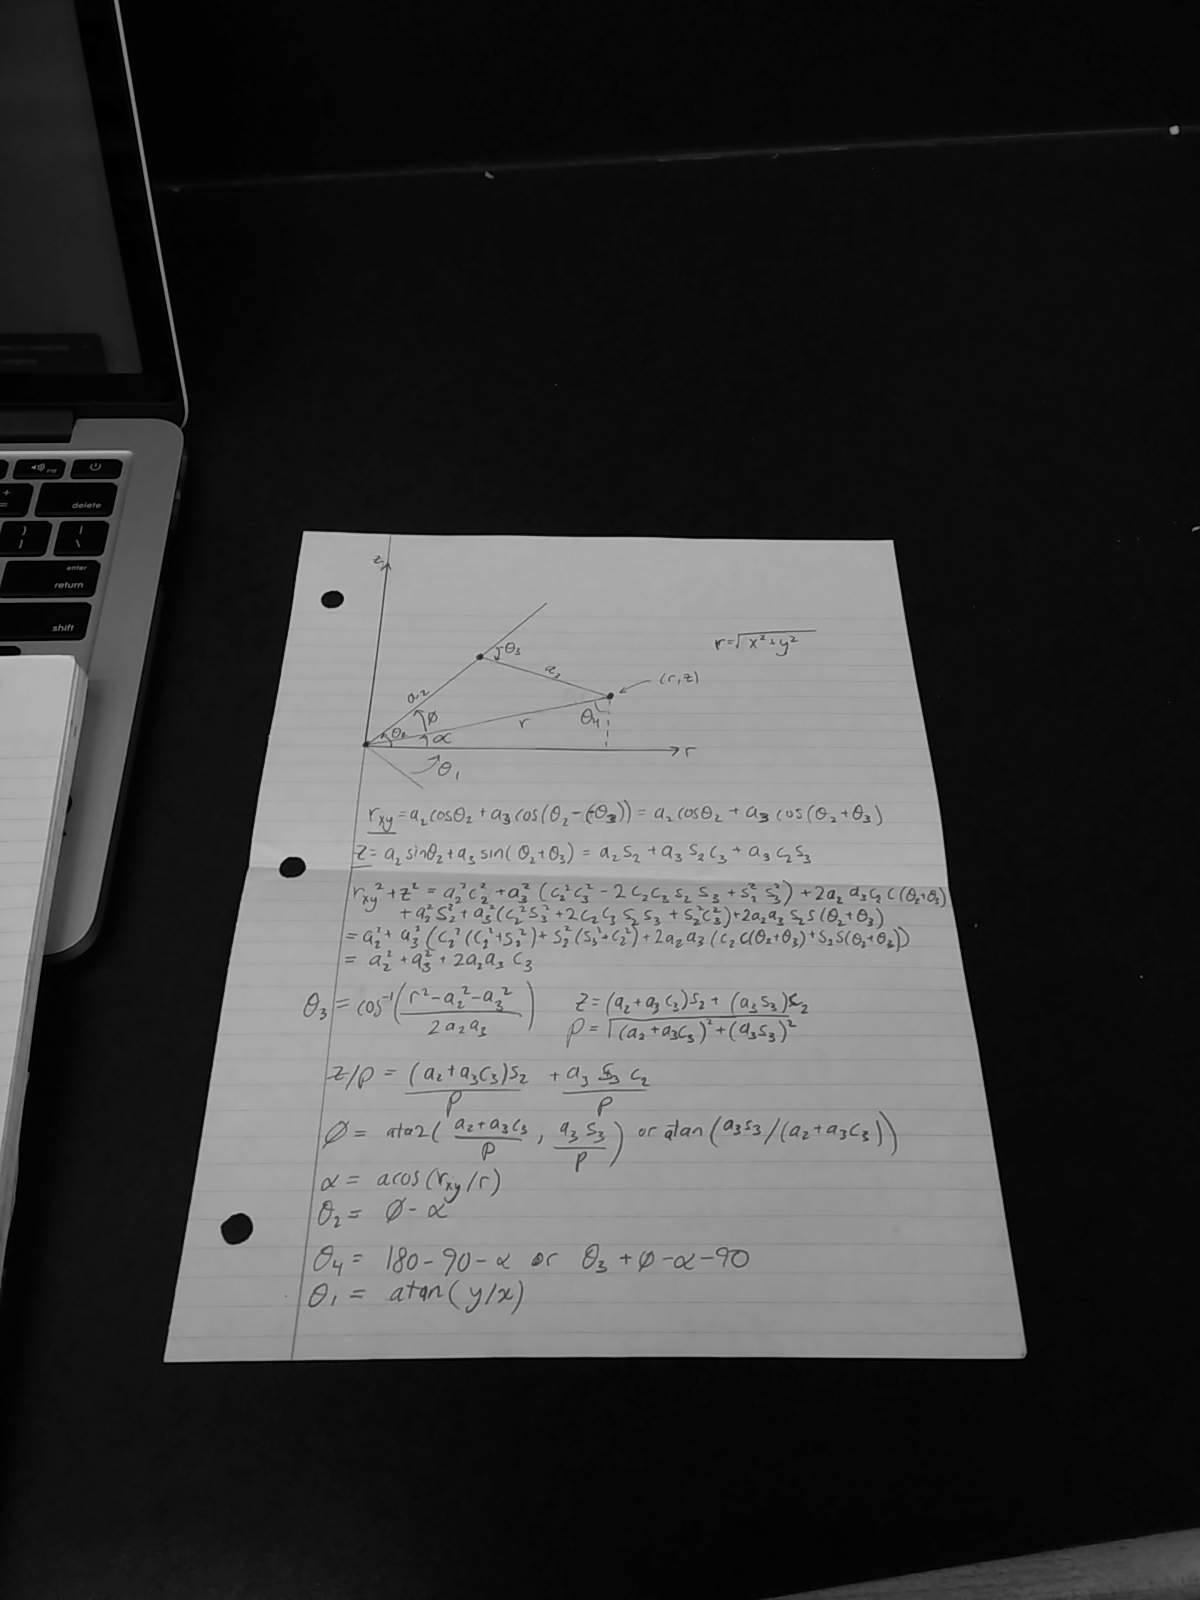 delete
enter
return
shift
z
θ₃
r=√x²+y²
a₃
(r,z)
a₂
φ
θ₄
r
θ₂
α
r
θ₁
r_xy = a₂cosθ₂ + a₃cos(θ₂-(-θ₃)) = a₂cosθ₂ + a₃ cos(θ₂+θ₃)
z = a₂ sinθ₂ + a₃ sin(θ₂+θ₃) = a₂s₂ + a₃ s₂c₃ + a₃ c₂s₃
r_xy² + z² = a₂²c₂² + a₃² (c₂²c₃² - 2 c₂c₃ s₂ s₃ + s₂² s₃²) + 2a₂ a₃c₂ c(θ₂+θ₃)
+ a₂² s₂² + a₃²(c₂²s₃² + 2c₂c₃ s₂s₃ + s₂²c₃²) + 2a₂a₃ s₂ s(θ₂+θ₃)
= a₂² + a₃² (c₂² (c₃²+s₃²) + s₂² (s₃²+c₃²) + 2a₂a₃ (c₂ c(θ₂+θ₃) + s₂ s(θ₂+θ₃))
= a₂² + a₃² + 2a₂a₃ c₃
θ₃ = cos⁻¹((r²-a₂²-a₃²)/(2a₂a₃))
z = (a₂+a₃c₃)s₂ + (a₃s₃)c₂
ρ = √(a₂+a₃c₃)²+(a₃s₃)²
z/ρ = (a₂+a₃c₃)s₂/ρ + a₃ s₃ c₂/ρ
φ = ata2( a₂+a₃c₃/ρ , a₃ s₃/ρ ) or atan(a₃s₃/(a₂+a₃c₃))
α = acos(r_xy/r)
θ₂ = φ-α
θ₄ = 180-90-α or θ₃+φ-α-90
θ₁ = atan(y/x)